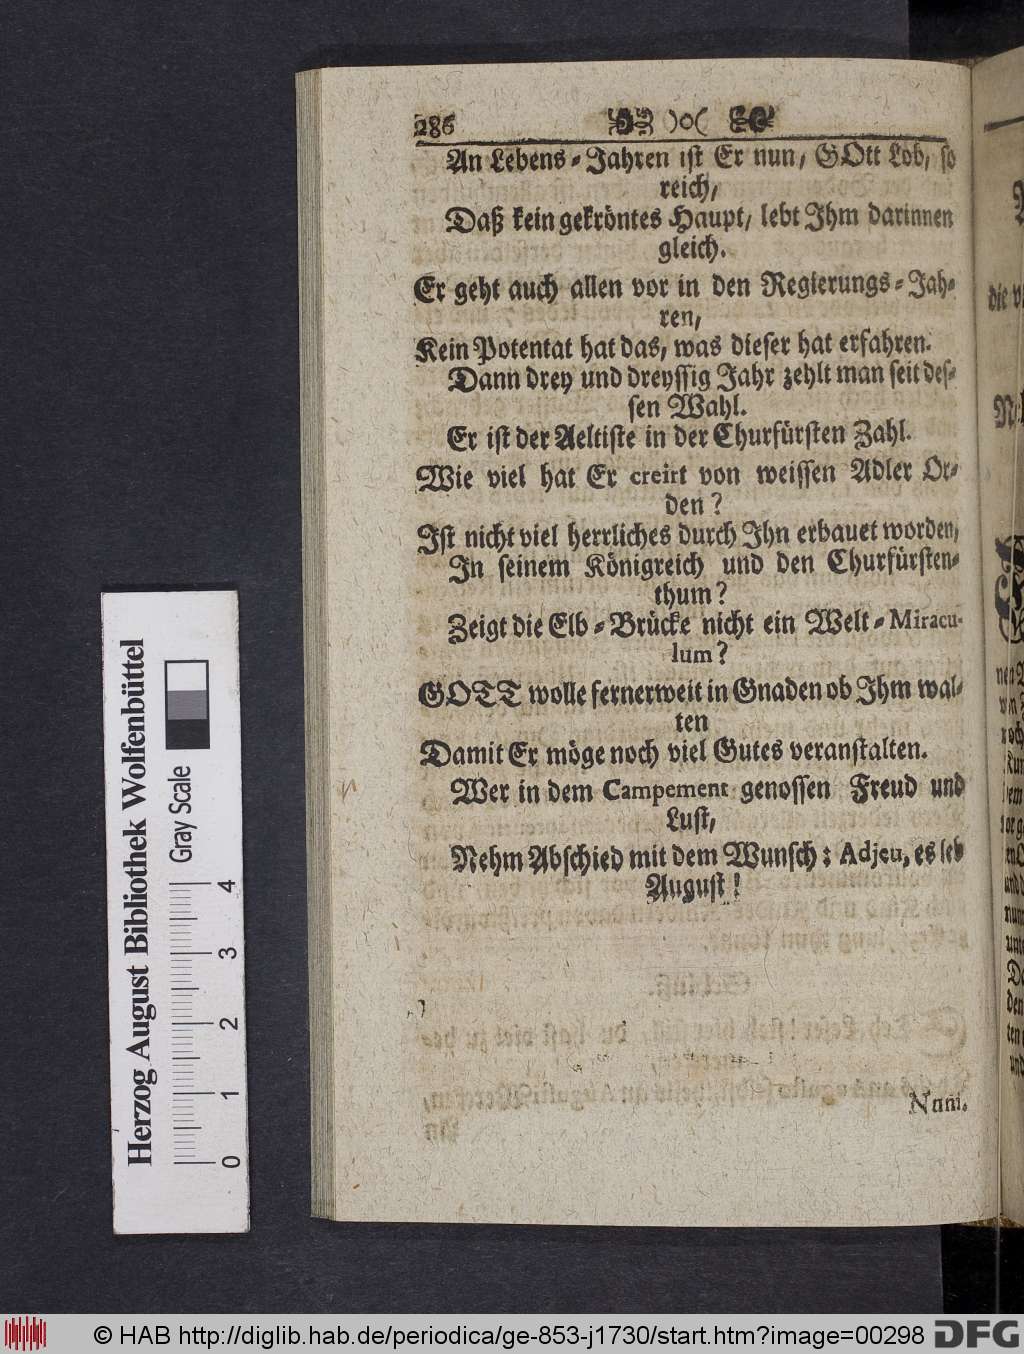 286 )o(
An Lebens-Jahren ist Er nun, GOtt Lob, so
reich,
Daß kein gekröntes Haupt, lebt Ihm darinnen
gleich.
Er geht auch allen vor in den Regierungs-Jah-
ren,
Kein Potentat hat das, was dieser hat erfahren.
Dann drey und dreyssig Jahr zehlt man seit des-
sen Wahl.
Er ist der Aeltiste in der Churfürsten Zahl.
Wie viel hat Er creirt von weissen Adler Or-
den?
Ist nicht viel herrliches durch Ihn erbauet worden,
In seinem Königreich und den Churfürsten-
thum?
Zeigt die Elb-Brücke nicht ein Welt-Miracu-
lum?
GOTT wolle fernerweit in Gnaden ob Ihm wal-
ten
Damit Er möge noch viel Gutes veranstalten.
Wer in dem Campement genossen Freud und
Lust,
Nehm Abschied mit dem Wunsch: Adjeu, es leb
August!
Num.
Herzog August Bibliothek Wolfenbüttel
Gray Scale
0 1 2 3 4
© HAB http://diglib.hab.de/periodica/ge-853-j1730/start.htm?image=00298 DFG